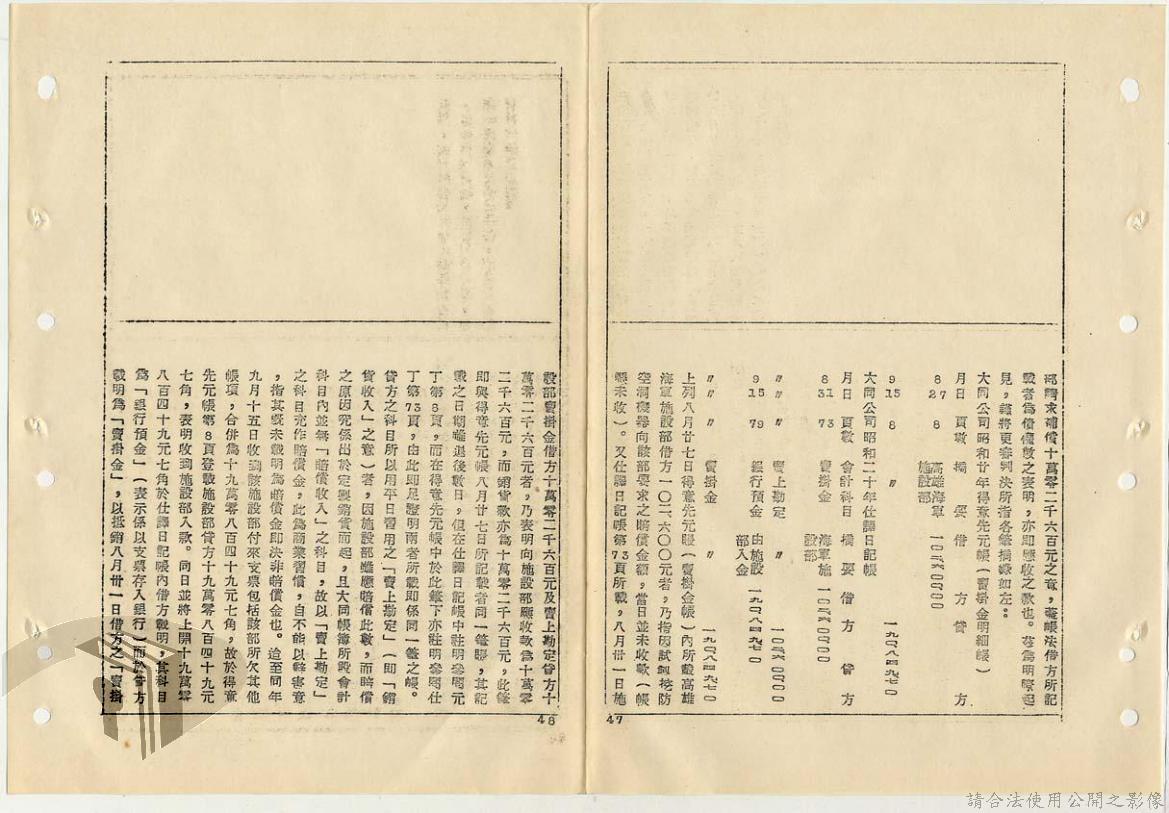 部請求補償十萬零二千六百元之意，蓋帳法借方所記
載者為債權數之表明，亦即應收之款也。茲為明瞭起
見，雖將更審判決所指各筆摘錄如左：
大同公司昭和廿年得意先元帳（賣掛金明細帳）
月日 頁數 摘要 借方 貸方
8 27 8 高雄海軍施設部 一〇二六〇〇〇〇
9 15 8 〃 一九〇八四九七〇
大同公司昭和二十年仕譯日記帳
月日 頁數 會計科目 摘要 借方 貸方
8 31 73 賣掛金 海軍施設部 一〇二六〇〇〇〇
〃 〃 賣上勘定 〃 一〇二六〇〇〇〇
9 15 79 銀行預金 由施設部入金 一九〇八四九七〇
〃 〃 賣掛金 〃 一九〇八四九七〇
上列八月廿七日得意先元帳（賣掛金帳）內所載高雄
海軍施設部借方一〇二、六〇〇元者，乃指因試鋼挖防
空洞機器向該部要求之賠償金額，當日並未收款（帳
懸未收）。又仕譯日記帳第73頁所載，八月卅一日施
47
設部賣掛金借方十萬零二千六百元及賣上勘定貸方十
萬零二千六百元者，乃表明向施設部應收款為十萬零
二千六百元，而銷貨款亦為十萬零二千六百元，此筆
即與得意先元帳八月廿七日所記載者同一筆賬，其記
載之日期雖退後數日，但在仕譯日記帳中註明參閱元
丁第8頁，而在得意先元帳中於此筆下亦註明參閱仕
丁第73頁，由此即足證明兩者所載即係同一筆之帳。
貸方之科目所以用平日習用之「賣上勘定」（即「銷
貨收入」之意）者，因施設部雖應賠償此數，而賠償
之原因究係出於定製銷貨而起，且大同帳簿所設會計
科目內並無「賠償收入」之科目，故以「賣上勘定」
之科目充作賠償金，此為商業習慣，自不能以辭害意
，指其既未載明為賠償金即決非賠償金也。迨至同年
九月十五日收到該施設部付來支票包括該部所欠其他
帳項，合併為十九萬零八百四十九元七角，故於得意
先元帳第8頁登載施設部貸方十九萬零八百四十九元
七角，表明收到施設部入款。同日並將上開十九萬零
八百四十九元七角於仕譯日記帳內借方載明，其科目
為「銀行預金」（表示係以支票存入銀行）而於貸方
載明為「賣掛金」，以抵銷八月卅一日借方之「賣掛
48
請合法使用公開之影像